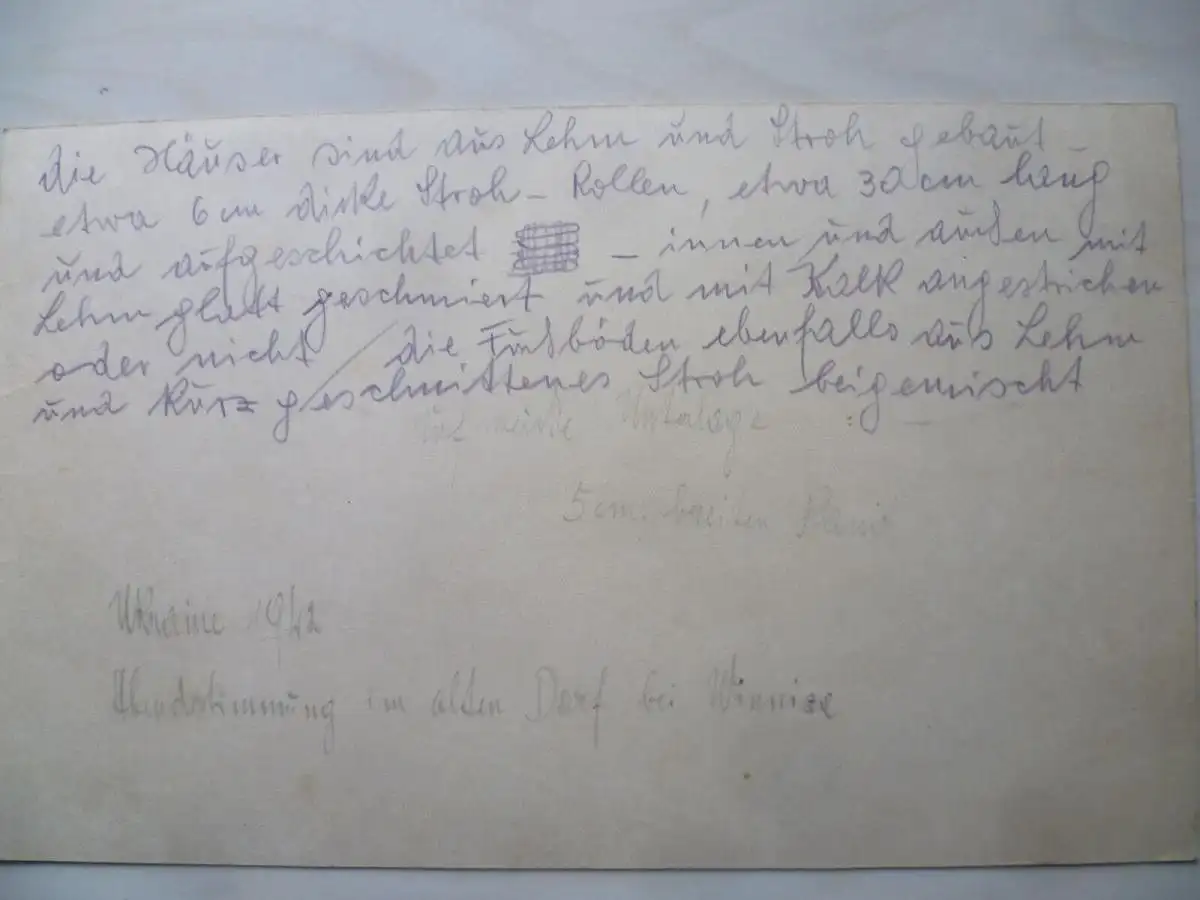 die Häuser sind aus Lehm und Stroh gebaut –
etwa 6 cm dicke Stroh – Rollen, etwa 30 cm lang
und aufgeschichtet – innen und außen mit
Lehm glatt geschmiert und mit Kalk angestrichen
oder nicht / die Fußböden ebenfalls aus Lehm
und kurz geschnittenes Stroh beigemischt
Unterlage
5 cm breiten
Ukraine 1942
Abendstimmung im alten Dorf bei Winniza